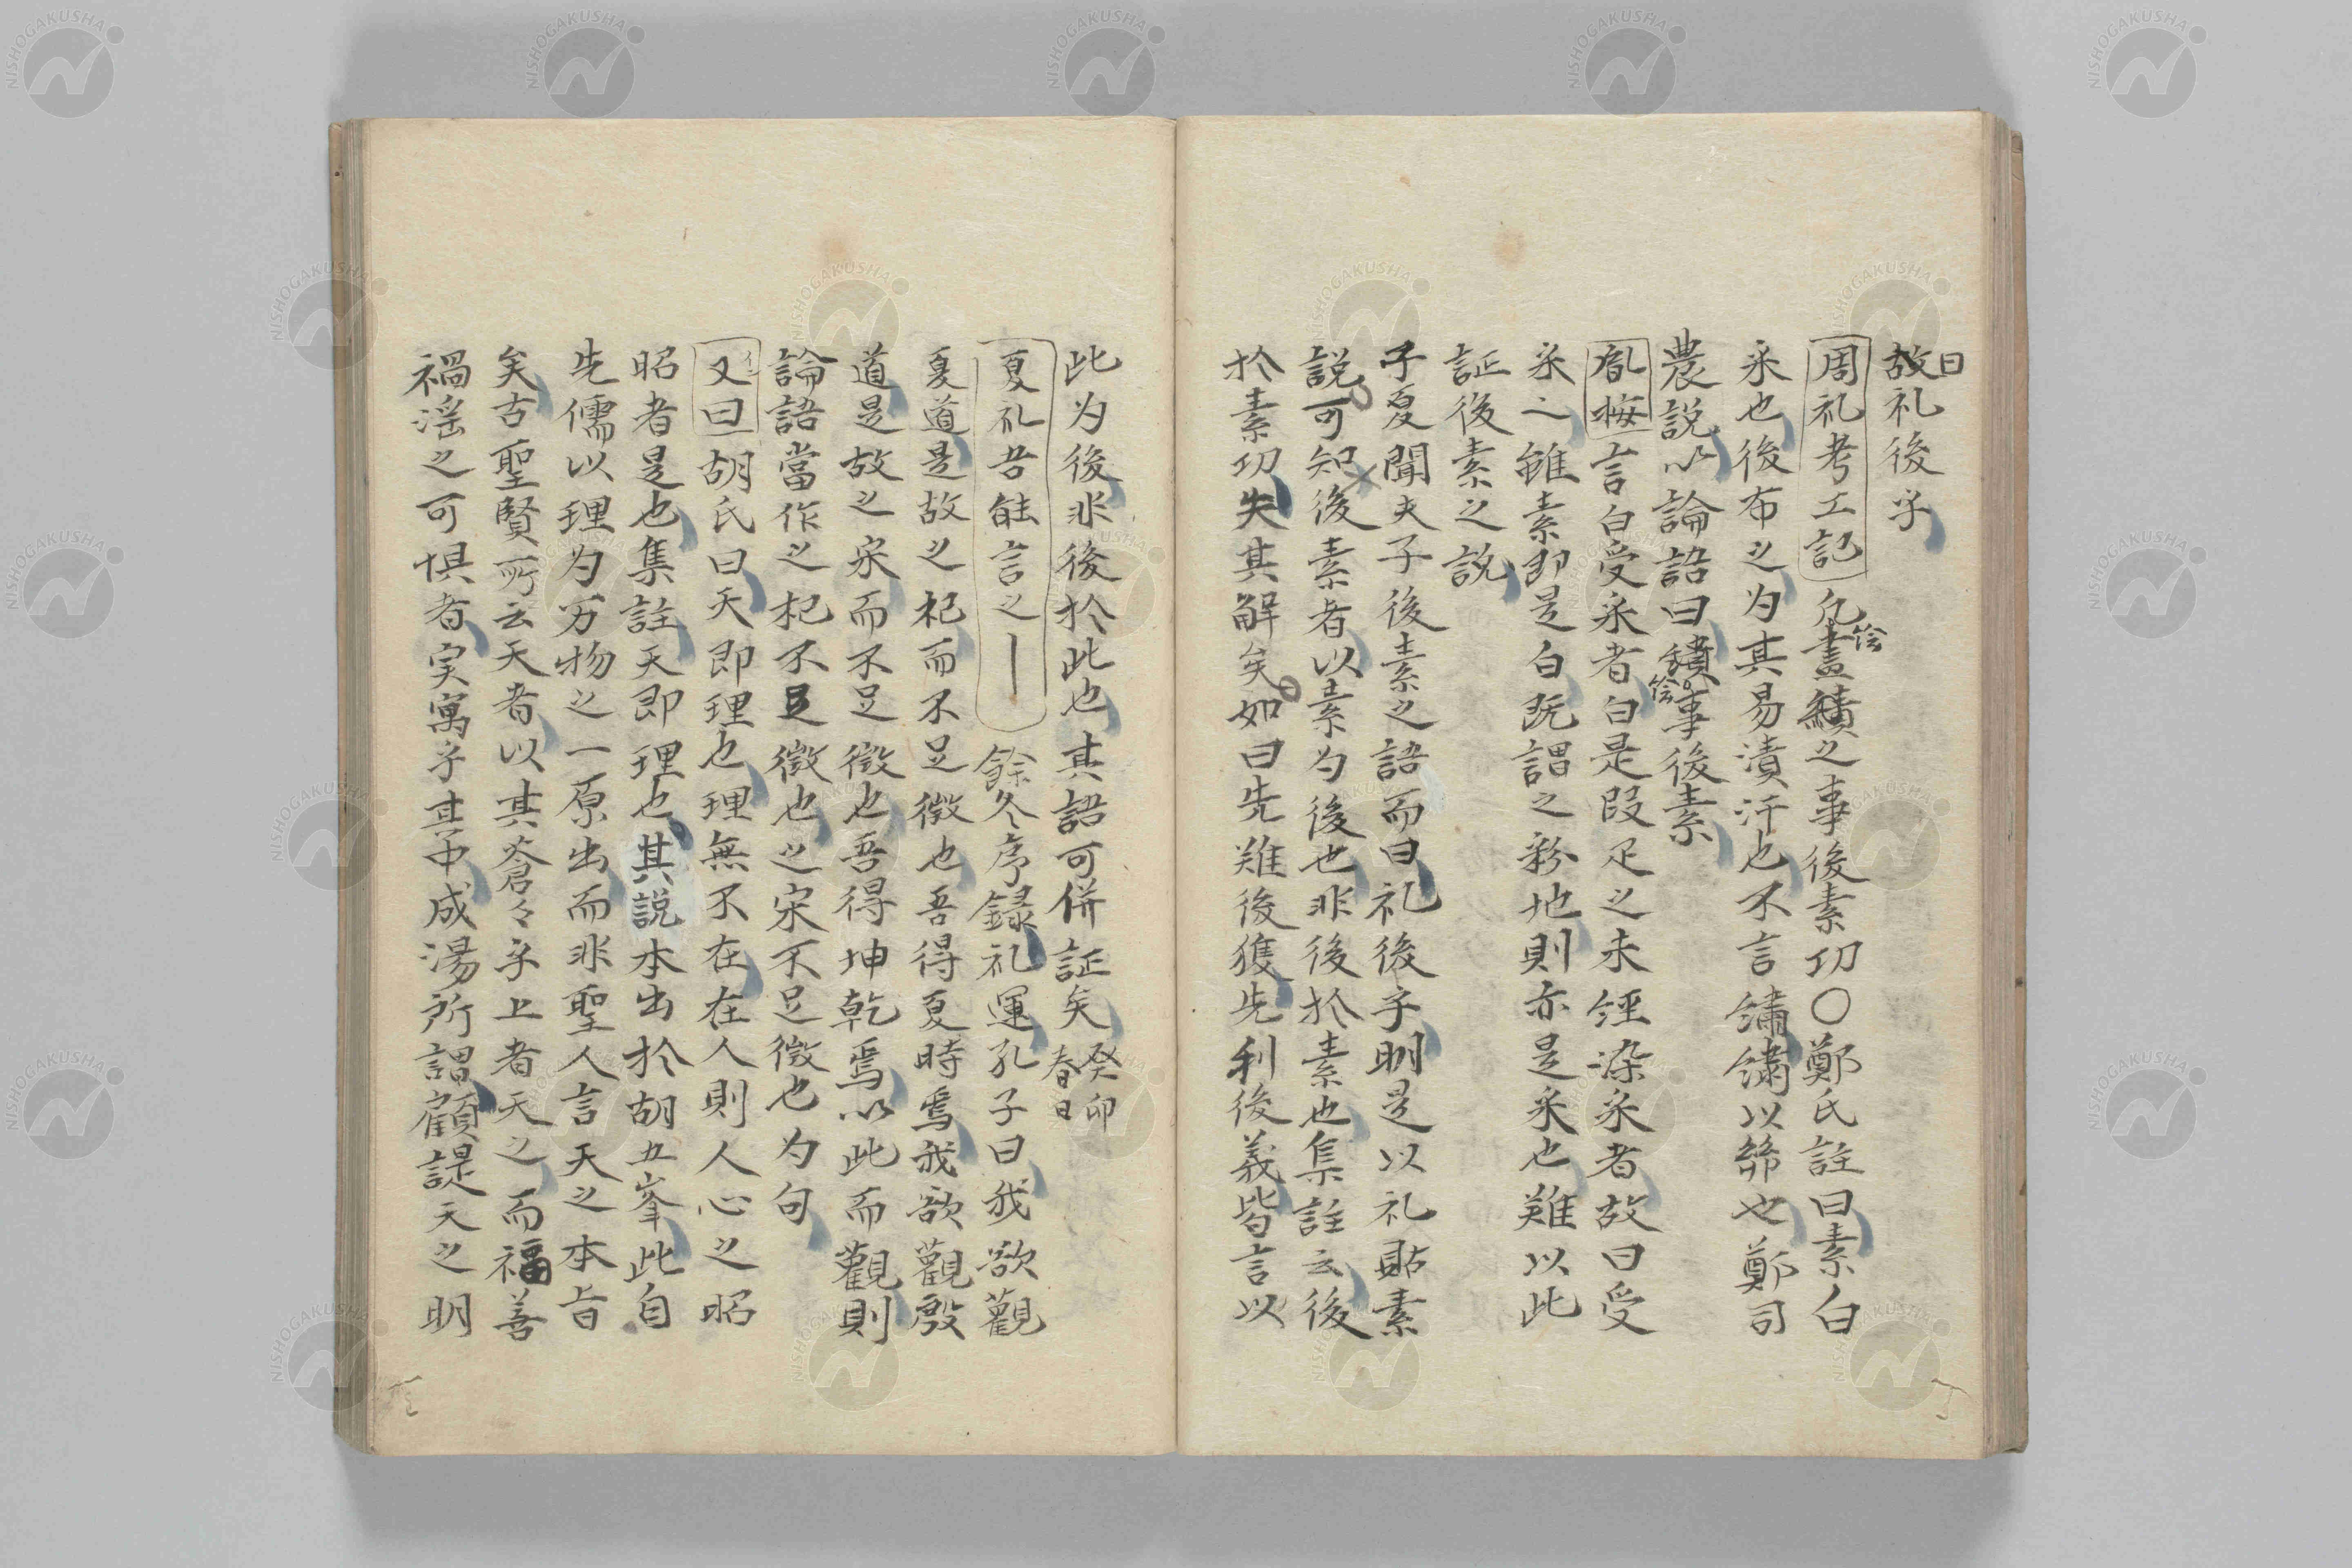 故曰礼後乎
周礼考工記凡畫繪績之事後素功○鄭氏註曰素白
采也後布之为其易漬汙也不言繡繡以絲也鄭司
農説以論語曰繢繪事後素
胤按言白受采者白是段疋之未經染采者故曰受
采之雖素即是白既謂之粉地則亦是采也難以此
証後素之説
子夏聞夫子後素之語而曰礼後乎明是以礼貼素
説可知後素者以素为後也非後於素也集註云後
於素功失其解矣如曰先難後獲先利後義皆言以
此为後非後於此也其語可併証矣癸卯春日
夏礼吾能言之｜餘冬序録礼運孔子曰我欲觀
夏道是故之杞而不足徴也吾得夏時焉我欲觀殷
道是故之宋而不足徴也吾得坤乾焉以此而觀則
論語當作之杞不足徴也之宋不足徴也为句
又曰胡氏曰天即理也理無不在在人則人心之昭
昭者是也集註天即理也其説本出於胡五峯此自
先儒以理为万物之一原出而非聖人言天之本旨
矣古聖賢所云天者以其蒼々乎上者天之而福善
禍淫之可惧者実寓乎其中成湯所謂顧諟天之明
NISHOGAKUSHA